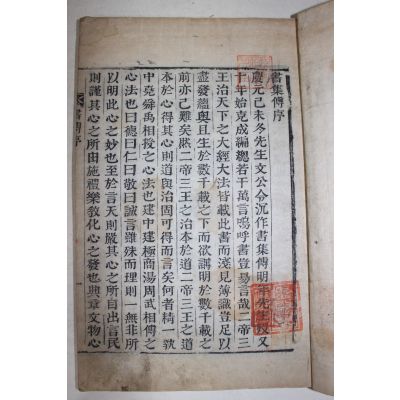 書集傳序
慶元己未冬先生文公令沉作書集傳明年先生歿又
十年始克成編總若干萬言嗚呼書豈易言哉二帝三
王治天下之大經大法皆載此書而淺見薄識豈足以
盡發蘊奧且生於數千載之下而欲講明於數千載之
前亦已難矣然二帝三王之治本於道二帝三王之道
本於心得其心則道與治固可得而言矣何者精一執
中堯舜禹相授之心法也建中建極商湯周武相傳之
心法也曰德曰仁曰敬曰誠言雖殊而理則一無非所
以明此心之妙也至於言天則嚴其心之所自出言民
則謹其心之所由施禮樂敎化心之發也典章文物心
書傳序